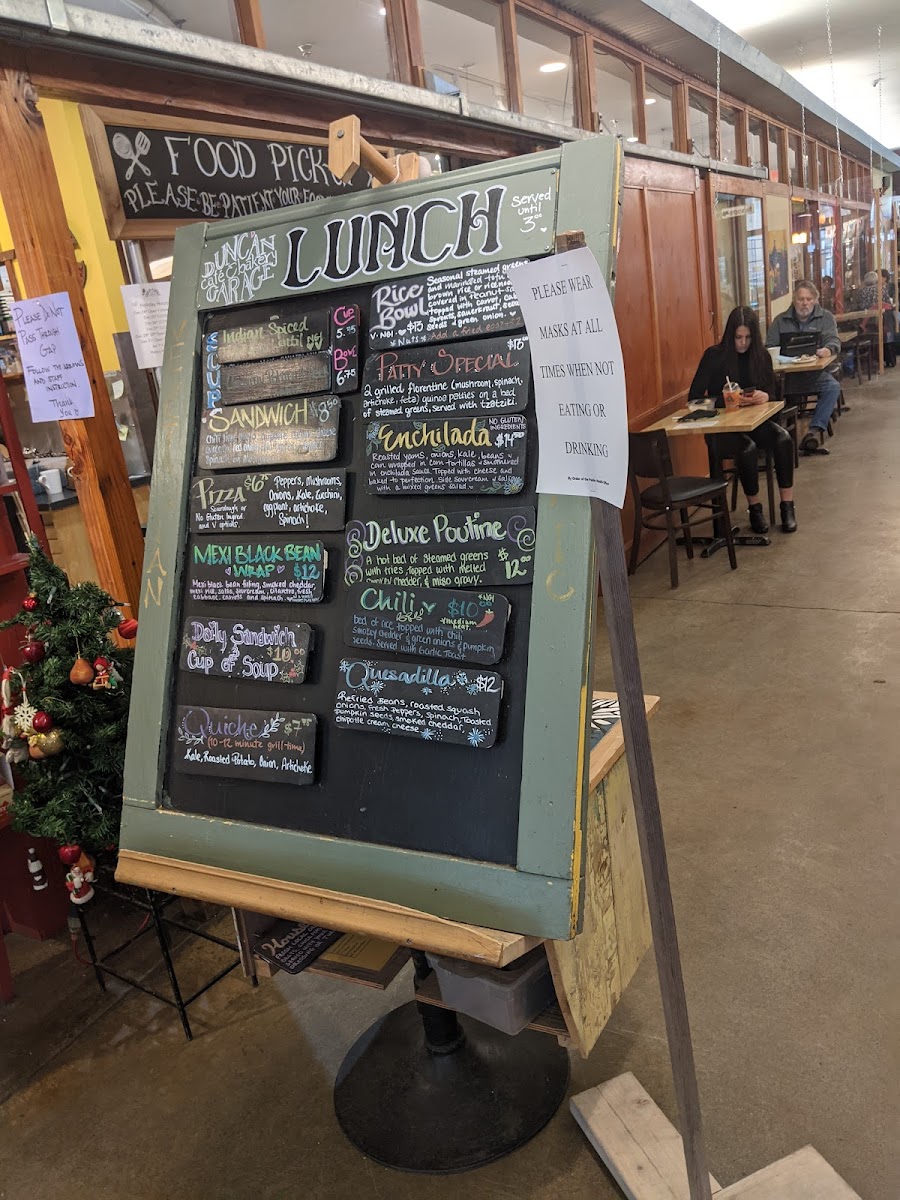 FOOD PICK
PLEASE BE PATIENT YOUR FOO
PLEASE DO NOT
PASS THROUGH
GAP
FOLLOW THE
AND STAFF
INSTRUCTION
THANK
YOU
DUNCAN
café & bakery
GARAGE
LUNCH
served
until
3:00
Indian Spiced
SOUP
Cup
5.25
Bowl
6.75
SANDWICH $8.50
PIZZA $6
Sourdough or
No Gluten Ingred
and V options
Peppers, Mushrooms,
Onions, Kale, Zucchini,
eggplant, artichoke,
Spinach!
MEXI BLACK BEAN
WRAP $12
Mexi black bean filling, smoked cheddar,
mexi rice, salsa, sourcream, cilantro, fresh
cabbage, carrots and spinach
Daily Sandwich
&
Cup of Soup
$10.00
Quiche $7
(10-12 minute grill-time)
Kale, Roasted Potato, Onion, Artichoke
Rice
Bowl
$13
Seasonal steamed greens
and marinated tofu
brown rice or rice no
covered in peanut sa
topped with carrot, ca
sprouts, sauerkraut,
seeds & green onion.
Add a fried egg
PATTY SPECIAL $16
2 grilled florentine (mushroom, spinach,
artichoke, feta) quinoa patties on a bed
of steamed greens, served with tzatziki
Enchilada $14
NO GLUTEN
INGREDIENTS
Roasted yams, onions, kale, beans &
corn wrapped in corn tortillas & smothered
in enchilada sauce. Topped with cheese and
baked to perfection. Side sourcream & salsa
with a mixed greens salad.
Deluxe Poutine
$12.00
A hot bed of steamed greens
with fries topped with melted
cheddar, & miso gravy.
Chili $10.00
medium
heat
bed of rice topped with chili,
smokey cheddar & green onions & pumpkin
seeds. Served with Garlic Toast
Quesadilla $12
Refried Beans, roasted squash
onions, fresh peppers, Spinach, Toasted
pumpkin seeds, smoked cheddar,
chipotle cream cheese
PLEASE WEAR
MASKS AT ALL
TIMES WHEN NOT
EATING OR
DRINKING
By Order of the Public Health Officer